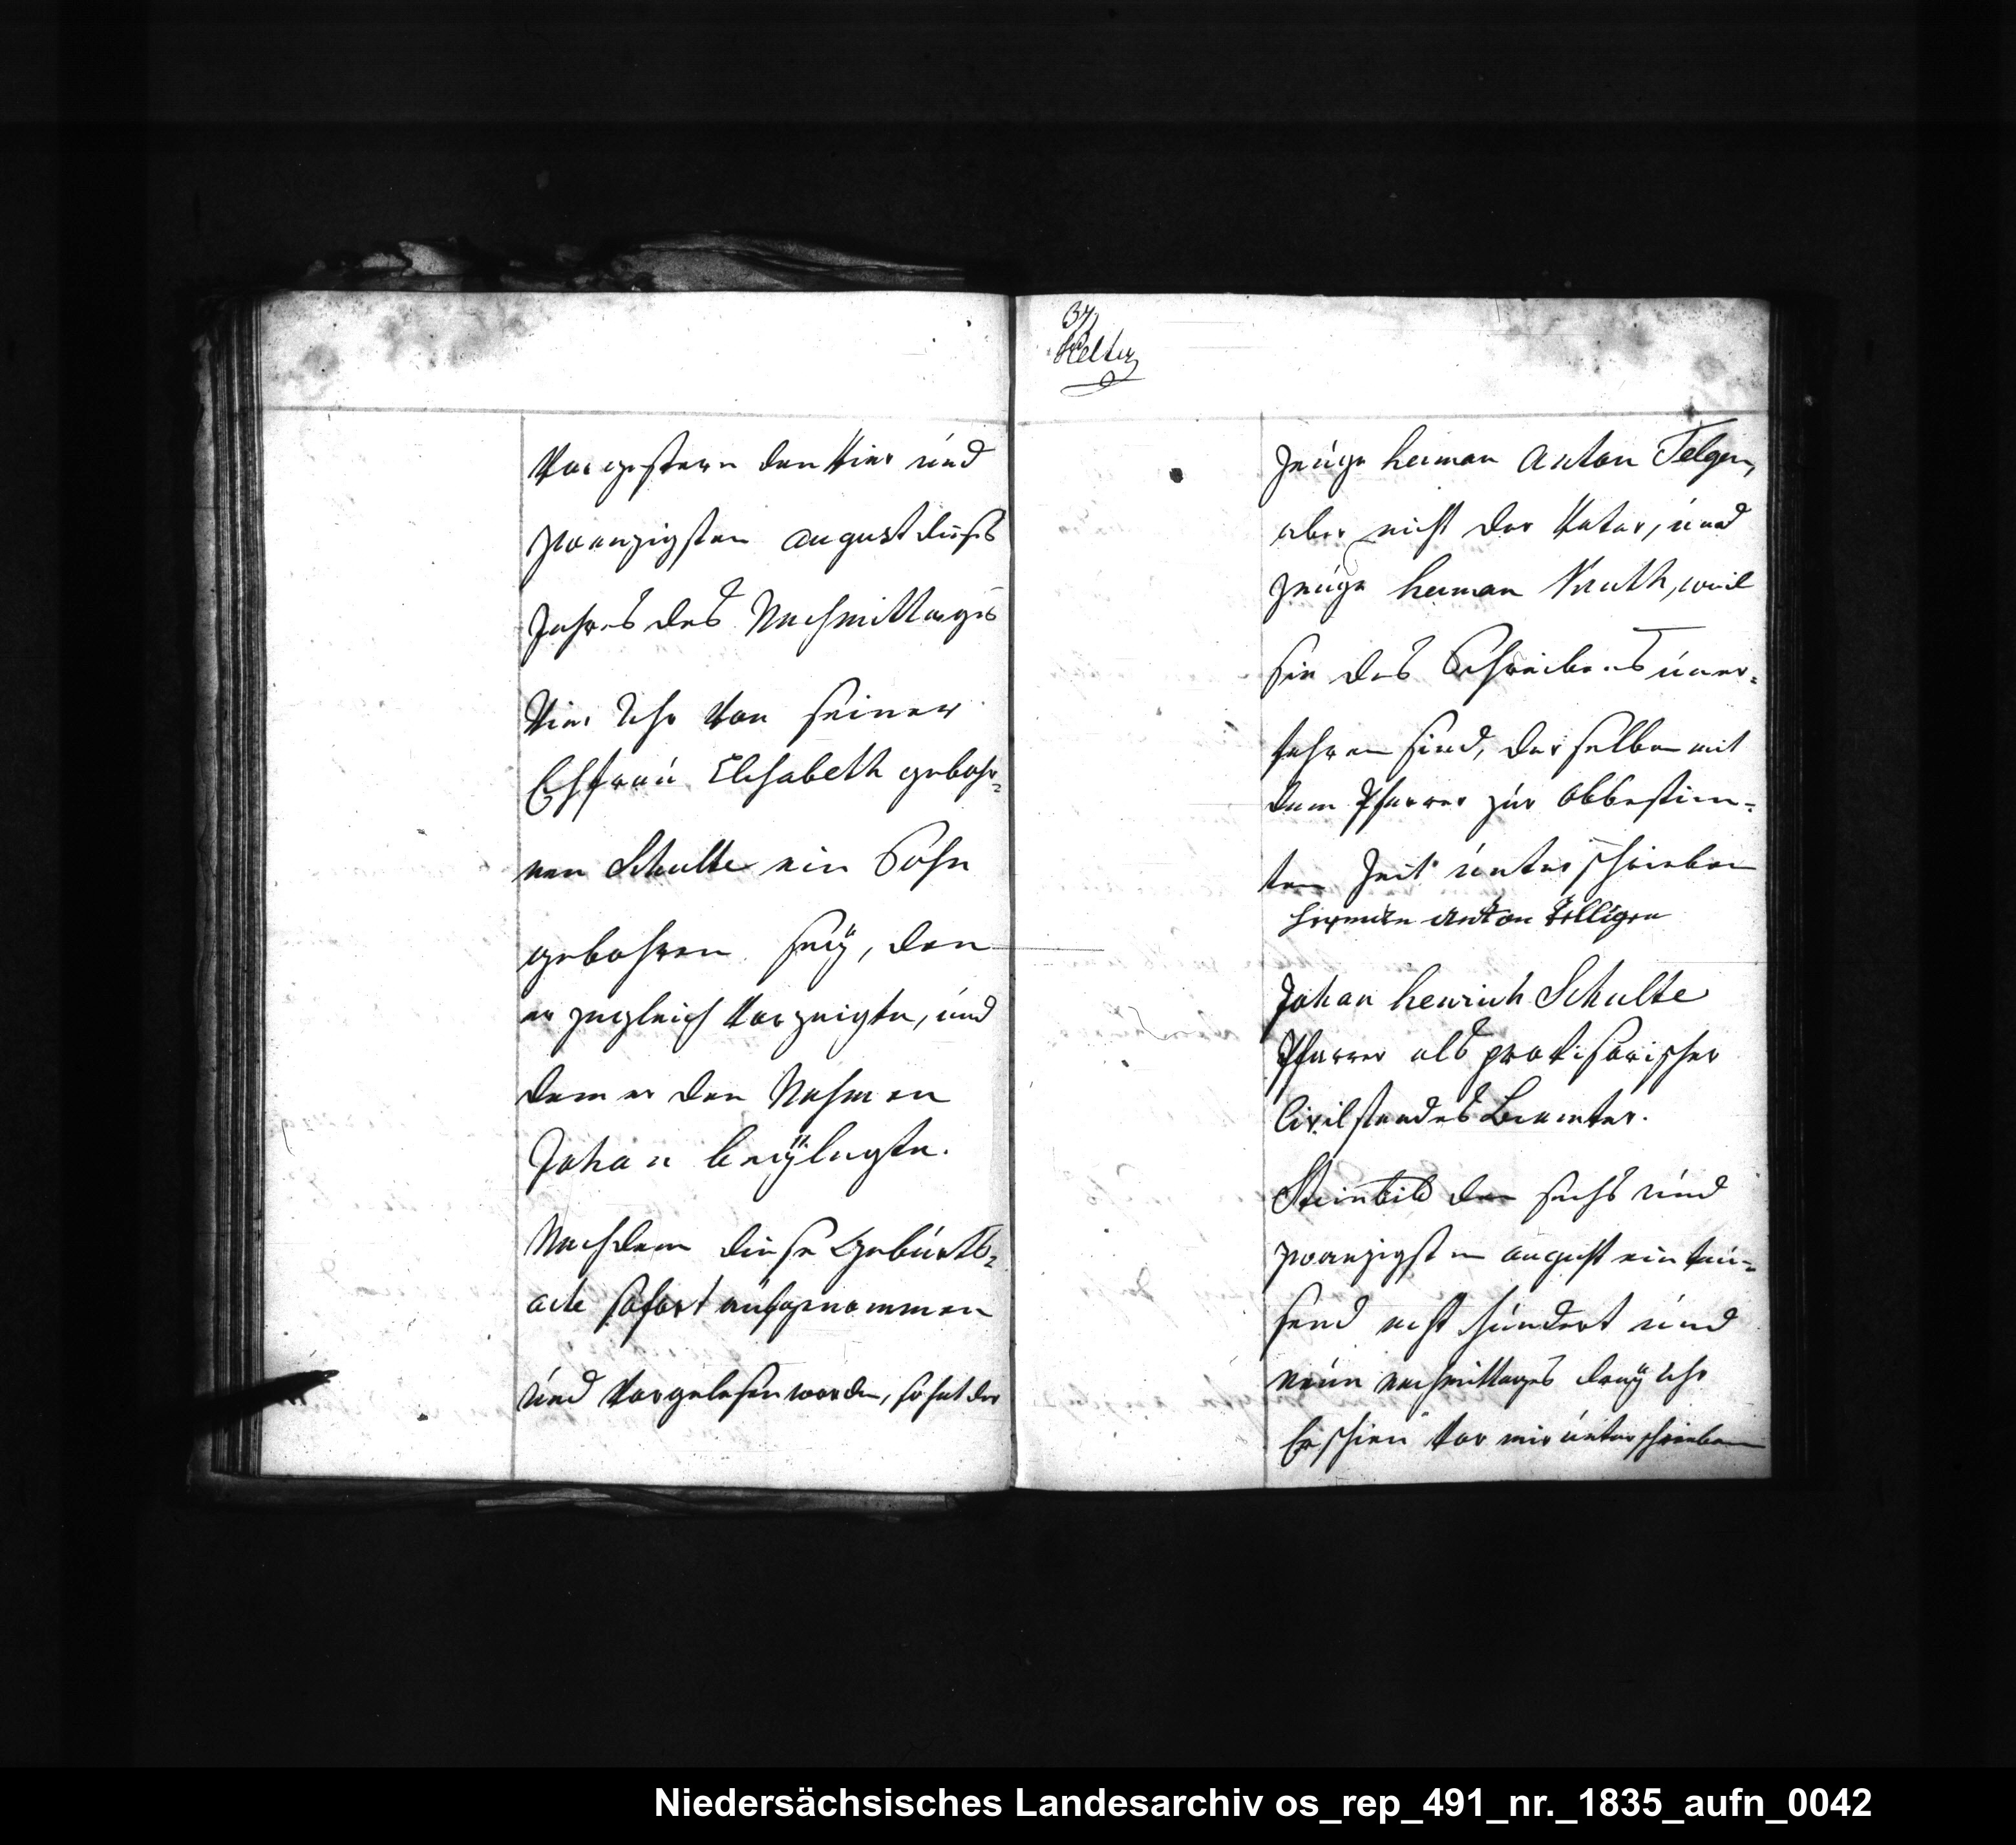 vorgestern den vier und
zwanzigsten august dieses
Jahres des Nachmittages
vier Uhr von seiner
Ehfrau Elisabeth gebohr=
nen Schulte ein Sohn
gebohren seÿ, den
er zugleich vorzeigte, und
dem er den Nahmen
Johan beÿlegte.
Nachdem diese Geburts=
acte sofort aufgenommen
und vorgelesen worden, so hat der
37
Zeuge herman anton Telgen,
aber nicht der Vater, und
Zeuge herman, weil
sie des Schreibens uner=
fahren sind, derselben mit
dem Pfarrer zur obbestim=
ten Zeit unterschrieben
Herman anton Telligen
Johan henrich Schulte
Pfarrer als provisorischer
Civilstandes Beamter.
Steinbild den sechs und
zwanzigsten august ein tau=
send acht hundert und
neun nachmittages dreÿ Uhr
Erschien vor mir unterschriebenen
Niedersächsisches Landesarchiv os_rep_491_nr._1835_aufn_0042